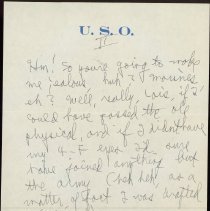 U. S. O.
IV
Hm! So you're going to make
me jealous, huh? Marines
eh? Well, really, Lois, if I
could have passed the old
physical, and if I didn't have
my 4-F eyes I'd sure
have joined anything but
the army. (heh heh, as a
matter of fact I was drafted